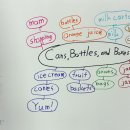 mom
bottles
milk carton
shopping
Orange juice
milk
Cans, Bottles, and Boxes
ice cream
fruit
juices
jam
cones
baskets
boxes
jars
Yum!